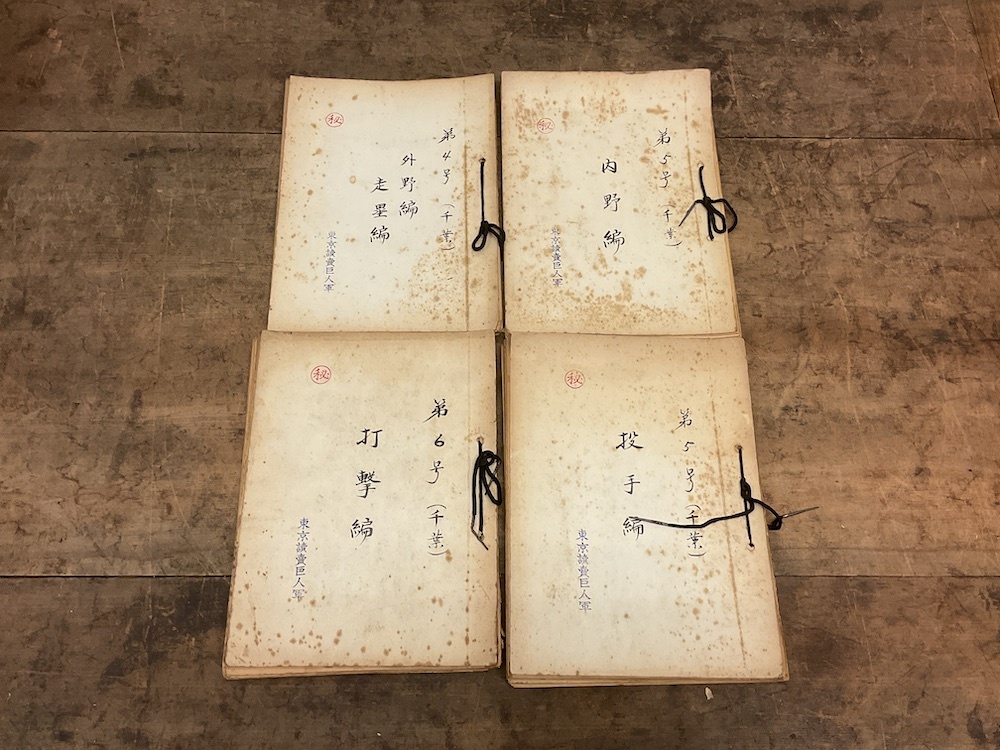 ㊙
第4号(千葉)
外野編
走塁編
東京読賣巨人軍
㊙
第5号(千葉)
内野編
東京読賣巨人軍
㊙
第6号(千葉)
打撃編
東京読賣巨人軍
㊙
第5号(千葉)
投手編
東京読賣巨人軍